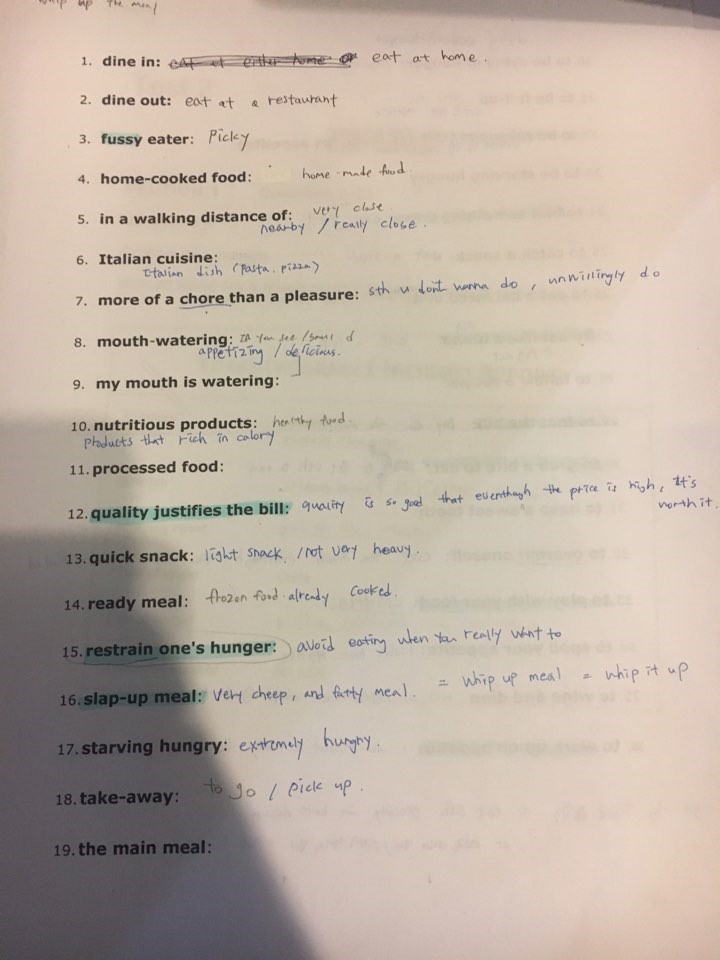 whip up the meal
1. dine in: eat at either home or eat at home.
2. dine out: eat at a restaurant
3. fussy eater: Picky
4. home-cooked food: home-made food
5. in a walking distance of: very close
nearby / really close.
6. Italian cuisine:
Italian dish (pasta. pizza)
7. more of a chore than a pleasure: sth u dont wanna do, unwillingly do
8. mouth-watering: If you see / smell
appetizing / delicious.
9. my mouth is watering:
10. nutritious products: healthy food.
products that rich in calory
11. processed food:
12. quality justifies the bill: quality is so good that eventhough the price is high, It's
worth it.
13. quick snack: light snack / not very heavy.
14. ready meal: frozen food. already cooked.
15. restrain one's hunger: avoid eating when you really want to
16. slap-up meal: Very cheep, and fatty meal. = whip up meal = whip it up
17. starving hungry: extremely hungry.
18. take-away: to go / pick up.
19. the main meal: